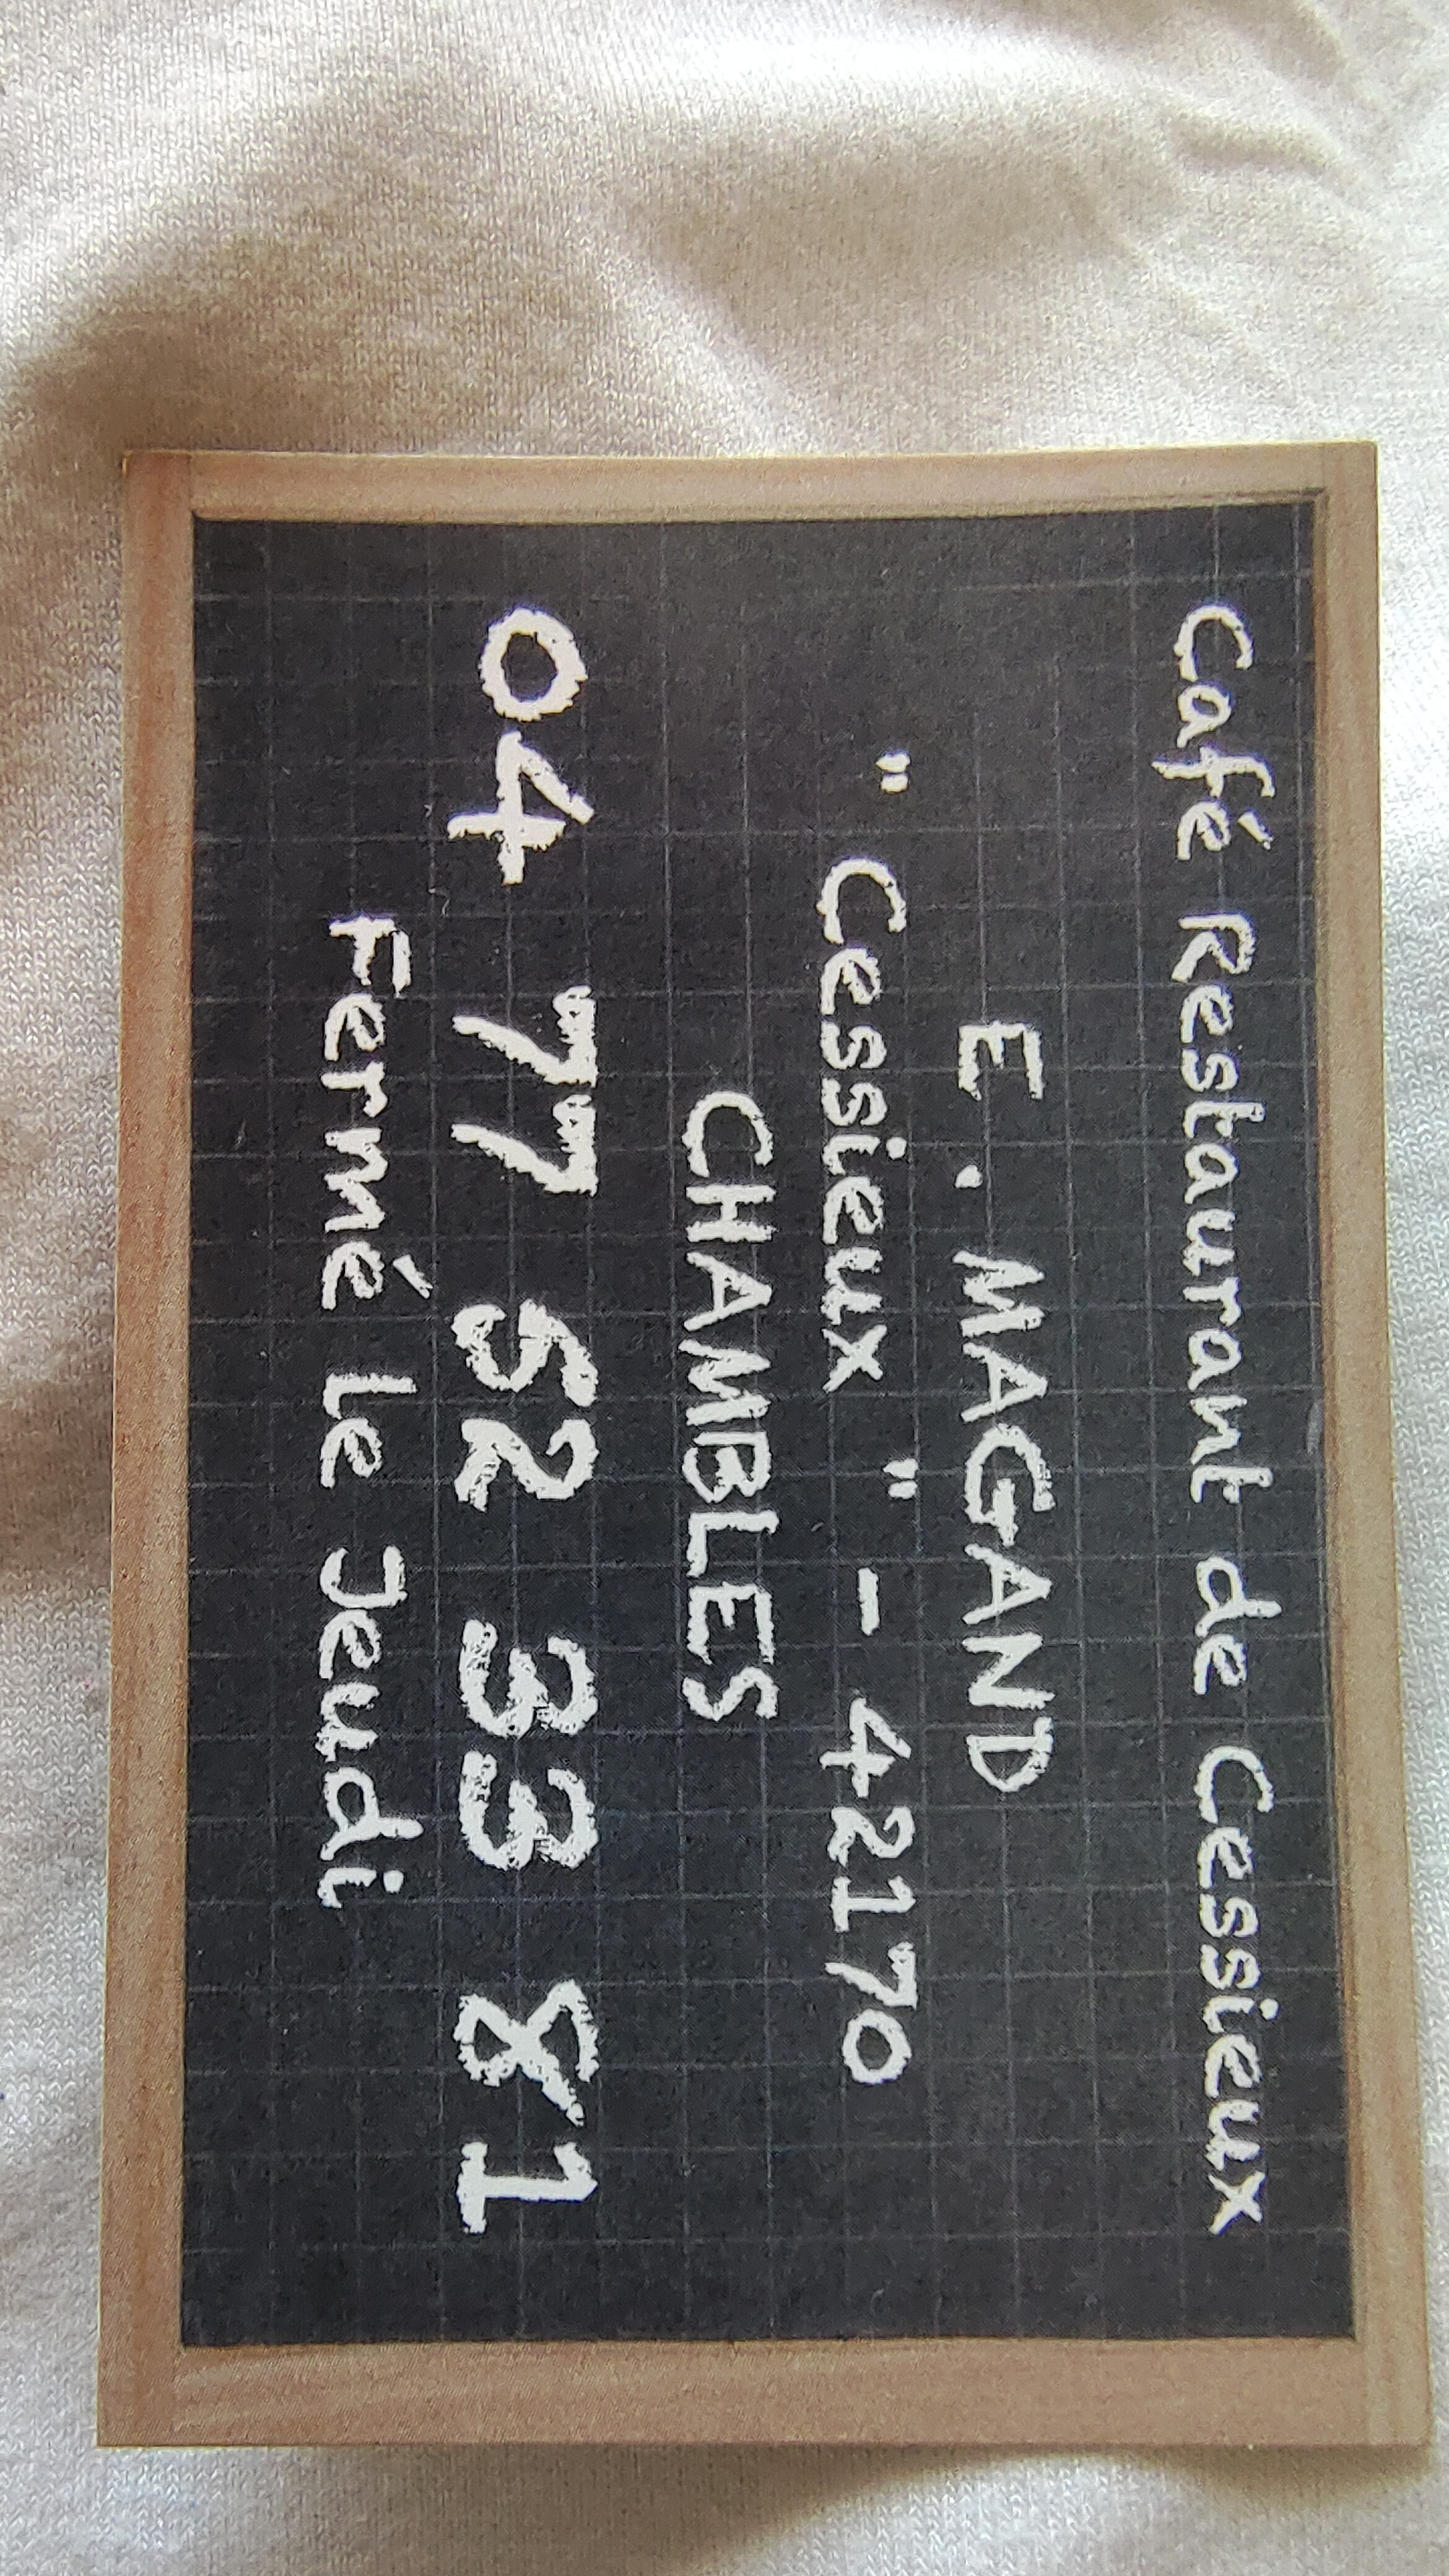 Café Restaurant de Cessieux
E. MAGAND
" Cessieux " - 42170
CHAMBLES
04 77 52 33 81
Fermé le Jeudi